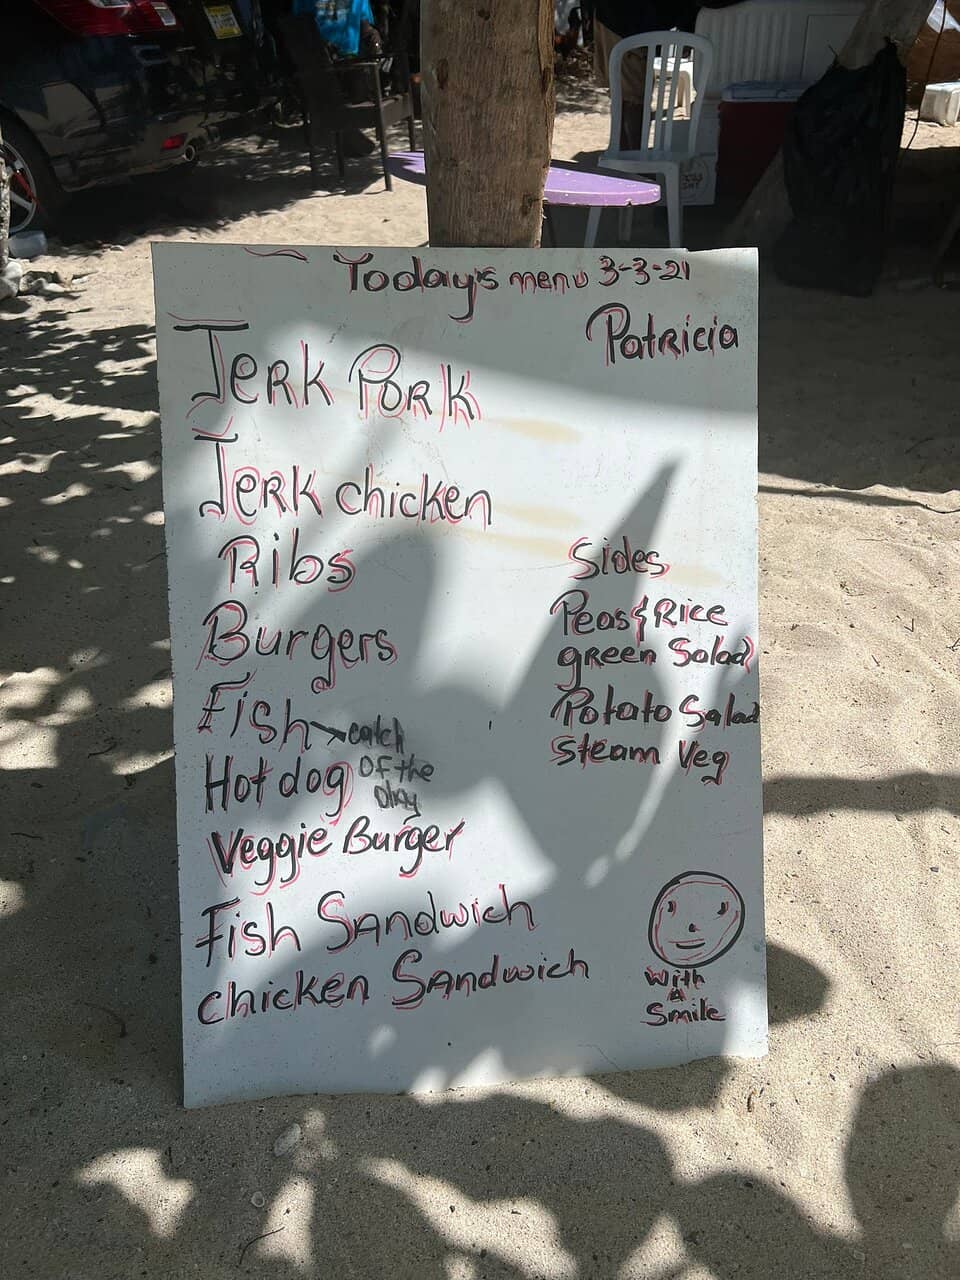 Today's menu 3-3-21
Patricia
Jerk Pork
Jerk chicken
Ribs
Burgers
Fish catch
Of the
Day
Hot dog
Veggie Burger
Fish Sandwich
chicken Sandwich
Sides
Peas & Rice
green Salad
Potato Salad
Steam Veg
With
A
Smile